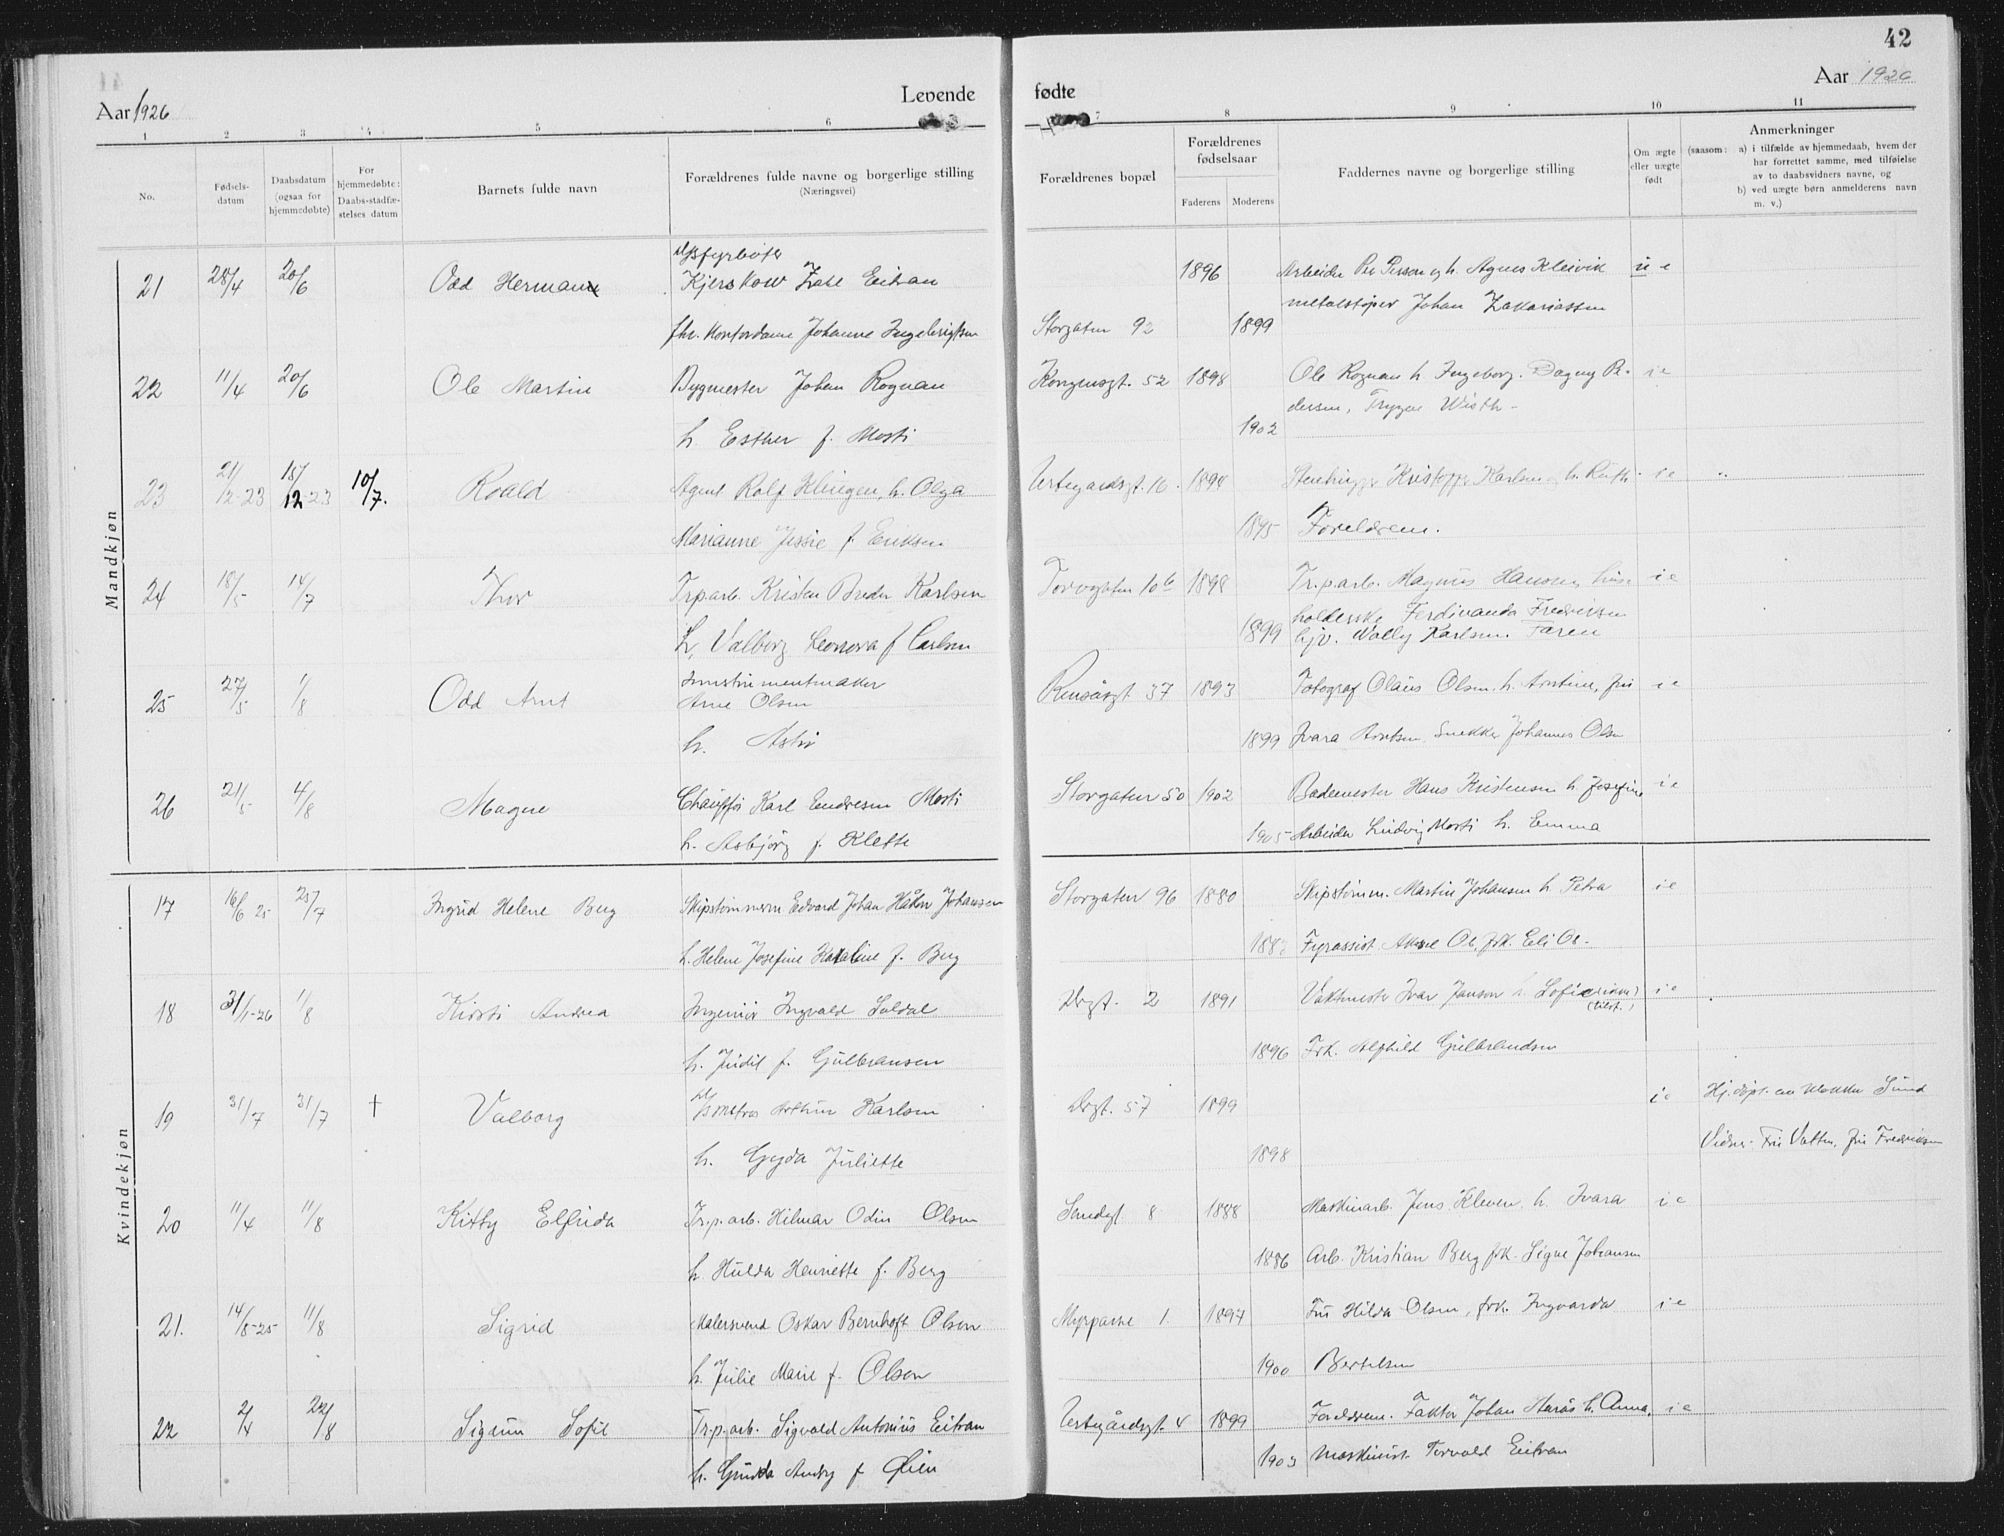 42
Aar 1926
Levende
fødte
Aar 1926
1 2 3 4 5 6 7 8 9 10 11
No.
Fødsels-datum
Daabsdatum (ogsaa for hjemmedøbte)
For hjemmedøbte: Daabs-stadfæ-stelses datum
Barnets fulde navn
Forældrenes fulde navne og borgerlige stilling
(Næringsvei)
Forældrenes bopæl
Forældrenes fødselsaar
Faderens
Moderens
Faddernes navne og borgerlige stilling
Om ægte eller uægte født
Anmerkninger
(saasom: a) i tilfælde av hjemmedaab, hvem der har forrettet samme, med tilføielse av to daabsvidners navne, og
b) ved uægte børn anmelderens navn m. v.)
Mandkjøn
21 28/4 20/6 Odd Herman Kjerskow Eitran 1896 Arbeider Per Person og h. Agnes Kleivik u e
metalstøper Johan Zakariassen
Kontordame Johanne Ingebrigtsen Storgaten 92 1899
22 11/4 20/6 Ole Martin Bygmester Johan Rognan Kongensgt. 52 1898 Ole Rognan h. Ingeborg. Dagny Pe- i e
dersen, Trygve Wisth -
h. Esther f. Mosti 1902
23 21/12-23 18/12-23 10/7. Roald Agent Rolf Klingen, h. Olga Urtegardsgt. 16. 1894 Kristoffer Karlsen h. Ruth i e
Marianne f. Eriksen 1895 Foreldrene.
24 18/5 14/7 Thor Trparb. Kristen Breder Karlsen Torvgaten 10b 1898 Tr.p.arb. Magnus Hansen, hus- i e
holderske Ferdinanda Fredriksen
h. Valborg Leonora f Carlsen 1899 hjv. Wally Karlsen. Faren
25 27/5 1/8 Odd Arnt Instrumentmaker
Arne Olsen 37 1893 Fotograf Olaus Olsen, h. Arntine, fru i e
h. Astri 1899 Ivara Arntsen. Snekker Johannes Olsen
26 21/5 4/8 Magne Chauffør Karl Endresen Mosti Storgaten 50 1902 Bademester Hans Kristensen h. Josefine i e
h. Asbjørg f. Klette 1905 Arbeider Ludvig Mosti h. Emma
Kvindekjøn
17 16/6 25 25/7 Ingrid Helene Berg Skipstømmerm Edvard Johan Håkon Johansen Storgaten 96 1880 Skipstømm. Martin Johansen h. Petra i e
h. Helene Josefine Karoline f. Berg Fyrassist. Aksel Ol. frk. Eli Ol.
18 31/1-26 1/8 Kirsti Andrea Ingeniør Ingvald Suldal 2 1891 Vaktmester Ivar Janson h. Sofie i e
h. Judit f. Gulbransen 1896 Frk. Alfhild Gulbrandsen
19 31/7 31/7 † Valborg Arthur Karlsen 57 1899 i e Hj.døpt.
h. Gyda Juliette 1898 Vidner. Fru Vatten, fru Fredriksen
20 11/4 11/8 Kitty Elfrida Tr.p.arb. Hilmar Odin Olsen Smedgt 8 1888 Maskinarb. Jens Kleven, h. Ivara i e
h. Hulda Henriette f. Berg 1886 Arb. Kristian Berg frk. Signe Johansen
21. 14/8-25 11/8 Sigrid Malersvend Oskar Bernhoft Olsen 1. 1897 Fru Hilda Olsen, frk. Ingvarda i e
h. Julie Marie f. Olsen 1900 Bertelsen
22 2/4 22/8 Sigrun Sofie Tr.p.arb. Sigvald Antonius Eitran Urtegårdsgt. 4 1899 Foreldrene. Faktor Johan Harås h. Anna, i e
h. f Øien 1903 Maskinist Torvald Eitran